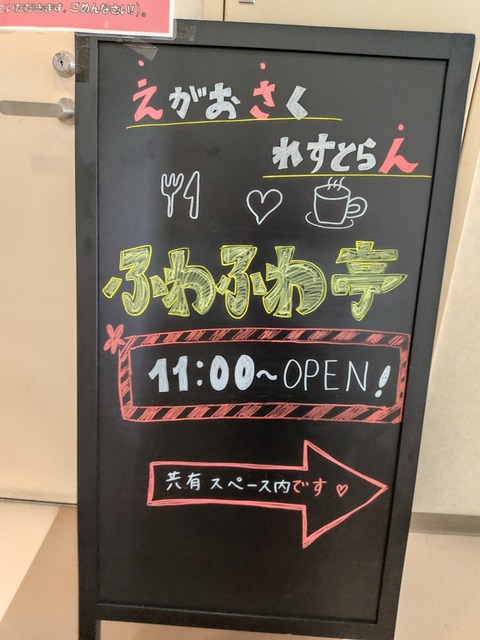 いただきます。ごめんなさい!)。
えがおさく
れすとらん
ふわふわ亭
11:00~OPEN!
共有スペース内です♡